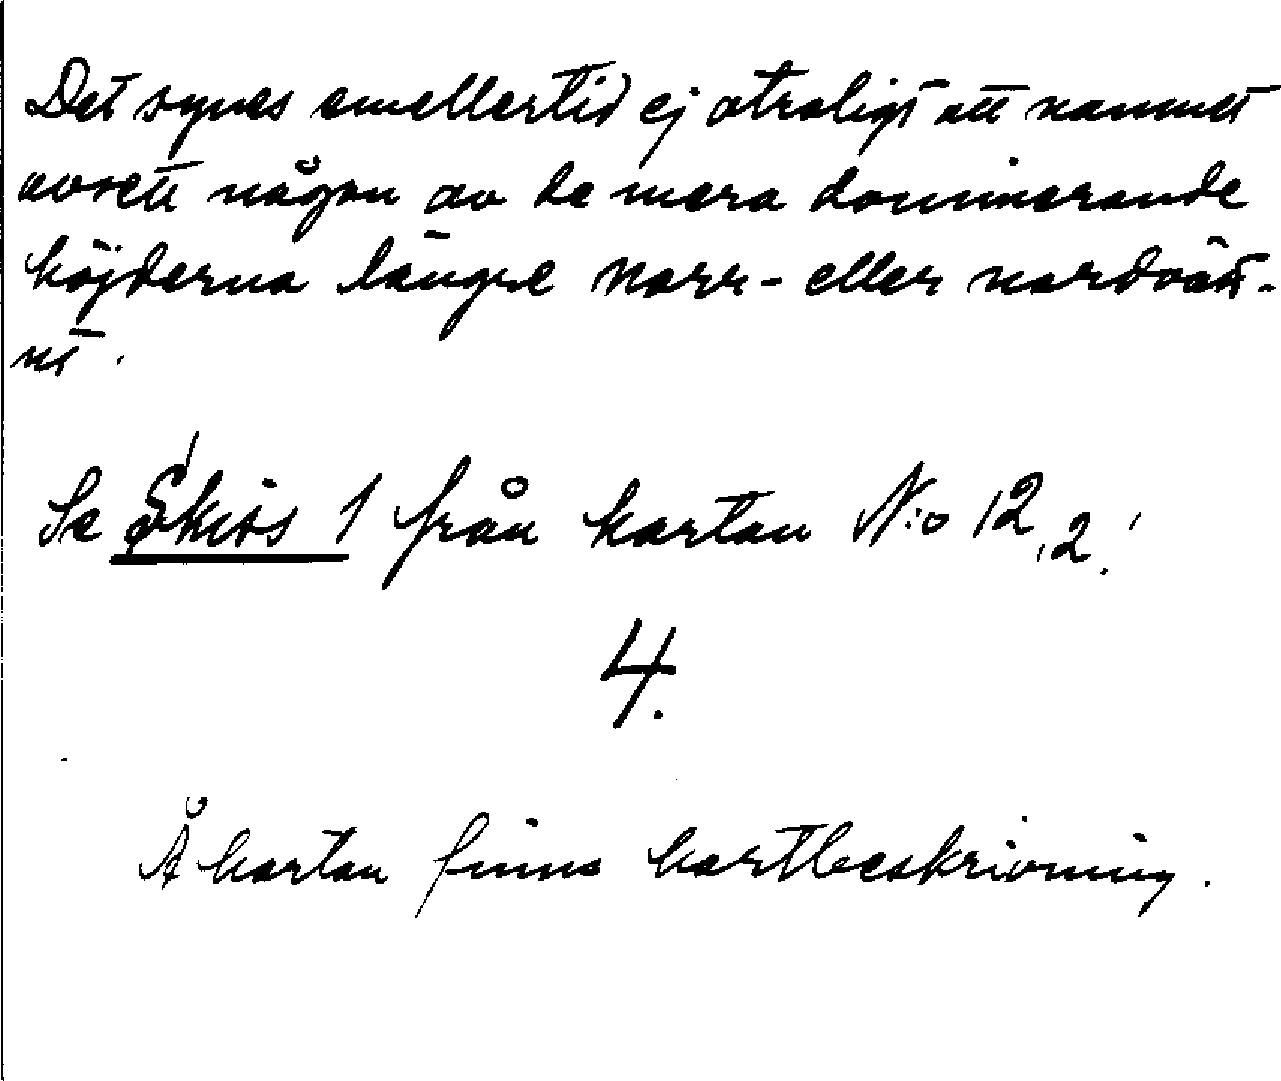 Det synes emellertid ej otroligt att namnet
avsett någon av de mera dominerande
höjderna längre norr- eller nordväst-
ut.
Se Skiss 1 från kartan N:o 12,2!
4.
Å kartan finns kartbeskrivning.